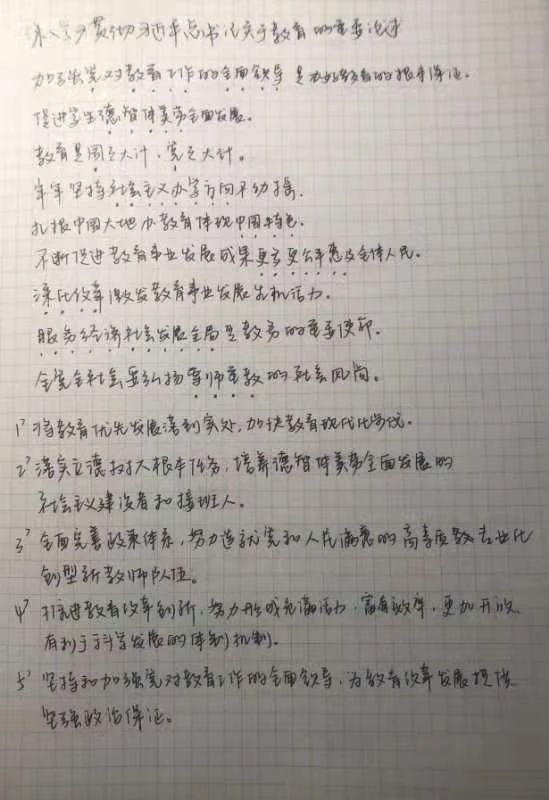 深入学习贯彻习近平总书记关于教育的重要论述
加强党对教育工作的全面领导是办好教育的根本保证。
促进学生德智体美劳全面发展。
教育是国之大计、党之大计。
牢牢坚持社会主义办学方向不动摇。
扎根中国大地办教育体现中国特色。
不断促进教育事业发展成果更多更公平惠及全体人民。
深化改革激发教育事业发展生机活力。
服务经济社会发展全局是教育的重要使命。
全党全社会要弘扬尊师重教的社会风尚。
1° 将教育优先发展落到实处,加快教育现代化步伐。
2° 落实立德树人根本任务,培养德智体美劳全面发展的
社会主义建设者和接班人。
3° 全面完善政策体系,努力造就党和人民满意的高素质教专业化
创新型教师队伍。
4° 推进教育改革创新,努力形成充满活力、富有效率、更加开放、
有利于科学发展的体制机制。
5° 坚持和加强党对教育工作的全面领导,为教育改革发展提供
坚强政治保证。